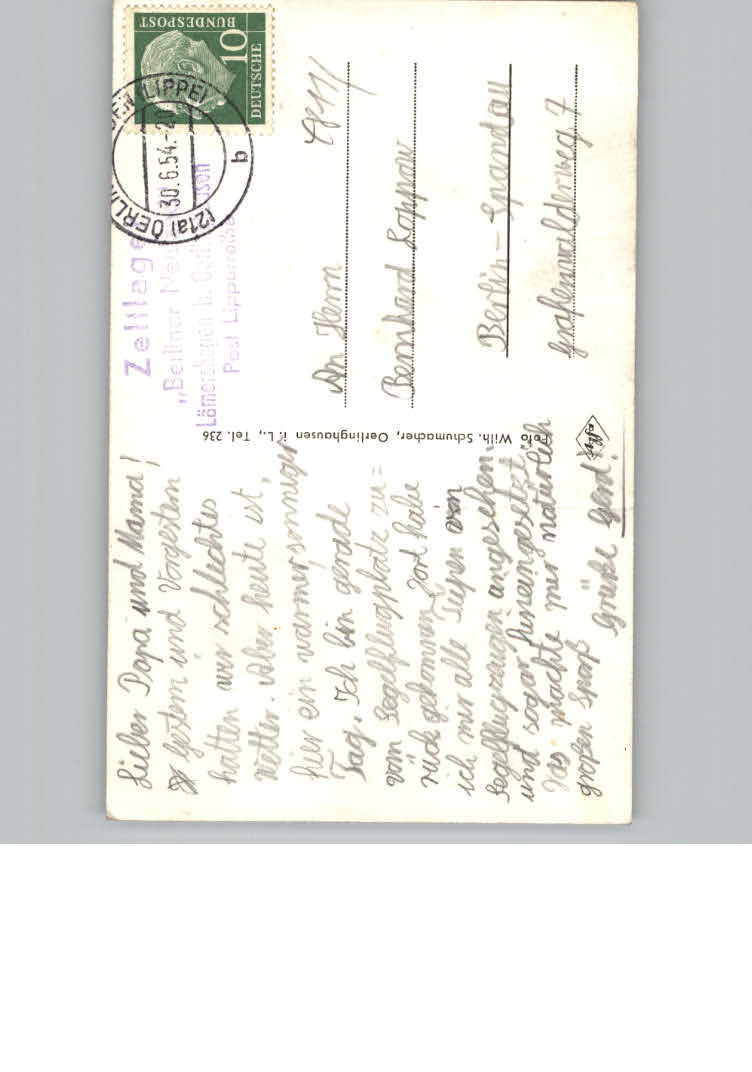 Lieber Papa und Mama!
Gestern und Vorgestern
hatten wir schlechtes
Wetter. Aber heute ist,
hier ein warmer sonniger
Tag. Ich bin gerade
vom Segelflugplatz zu=
rück gekommen. Dort habe
ich mir alle Tüpen von
Segelflugzeugen angesehen.
und sogar hineingesetzt.
Das machte mir natürlich
großen Spaß
Grüße Gerd!
Foto Wilh. Schumacher, Oerlinghausen i. L., Tel. 236
Agfa
DEUTSCHE
BUNDESPOST
10
(21a) OERLIN EN (LIPPE)
30.6.54.-20
b
Zeltlage
"Berliner
Lämershagen b.
Post
An Herrn
Bernhard
Berlin-Spandau
Grafenwalderweg 7